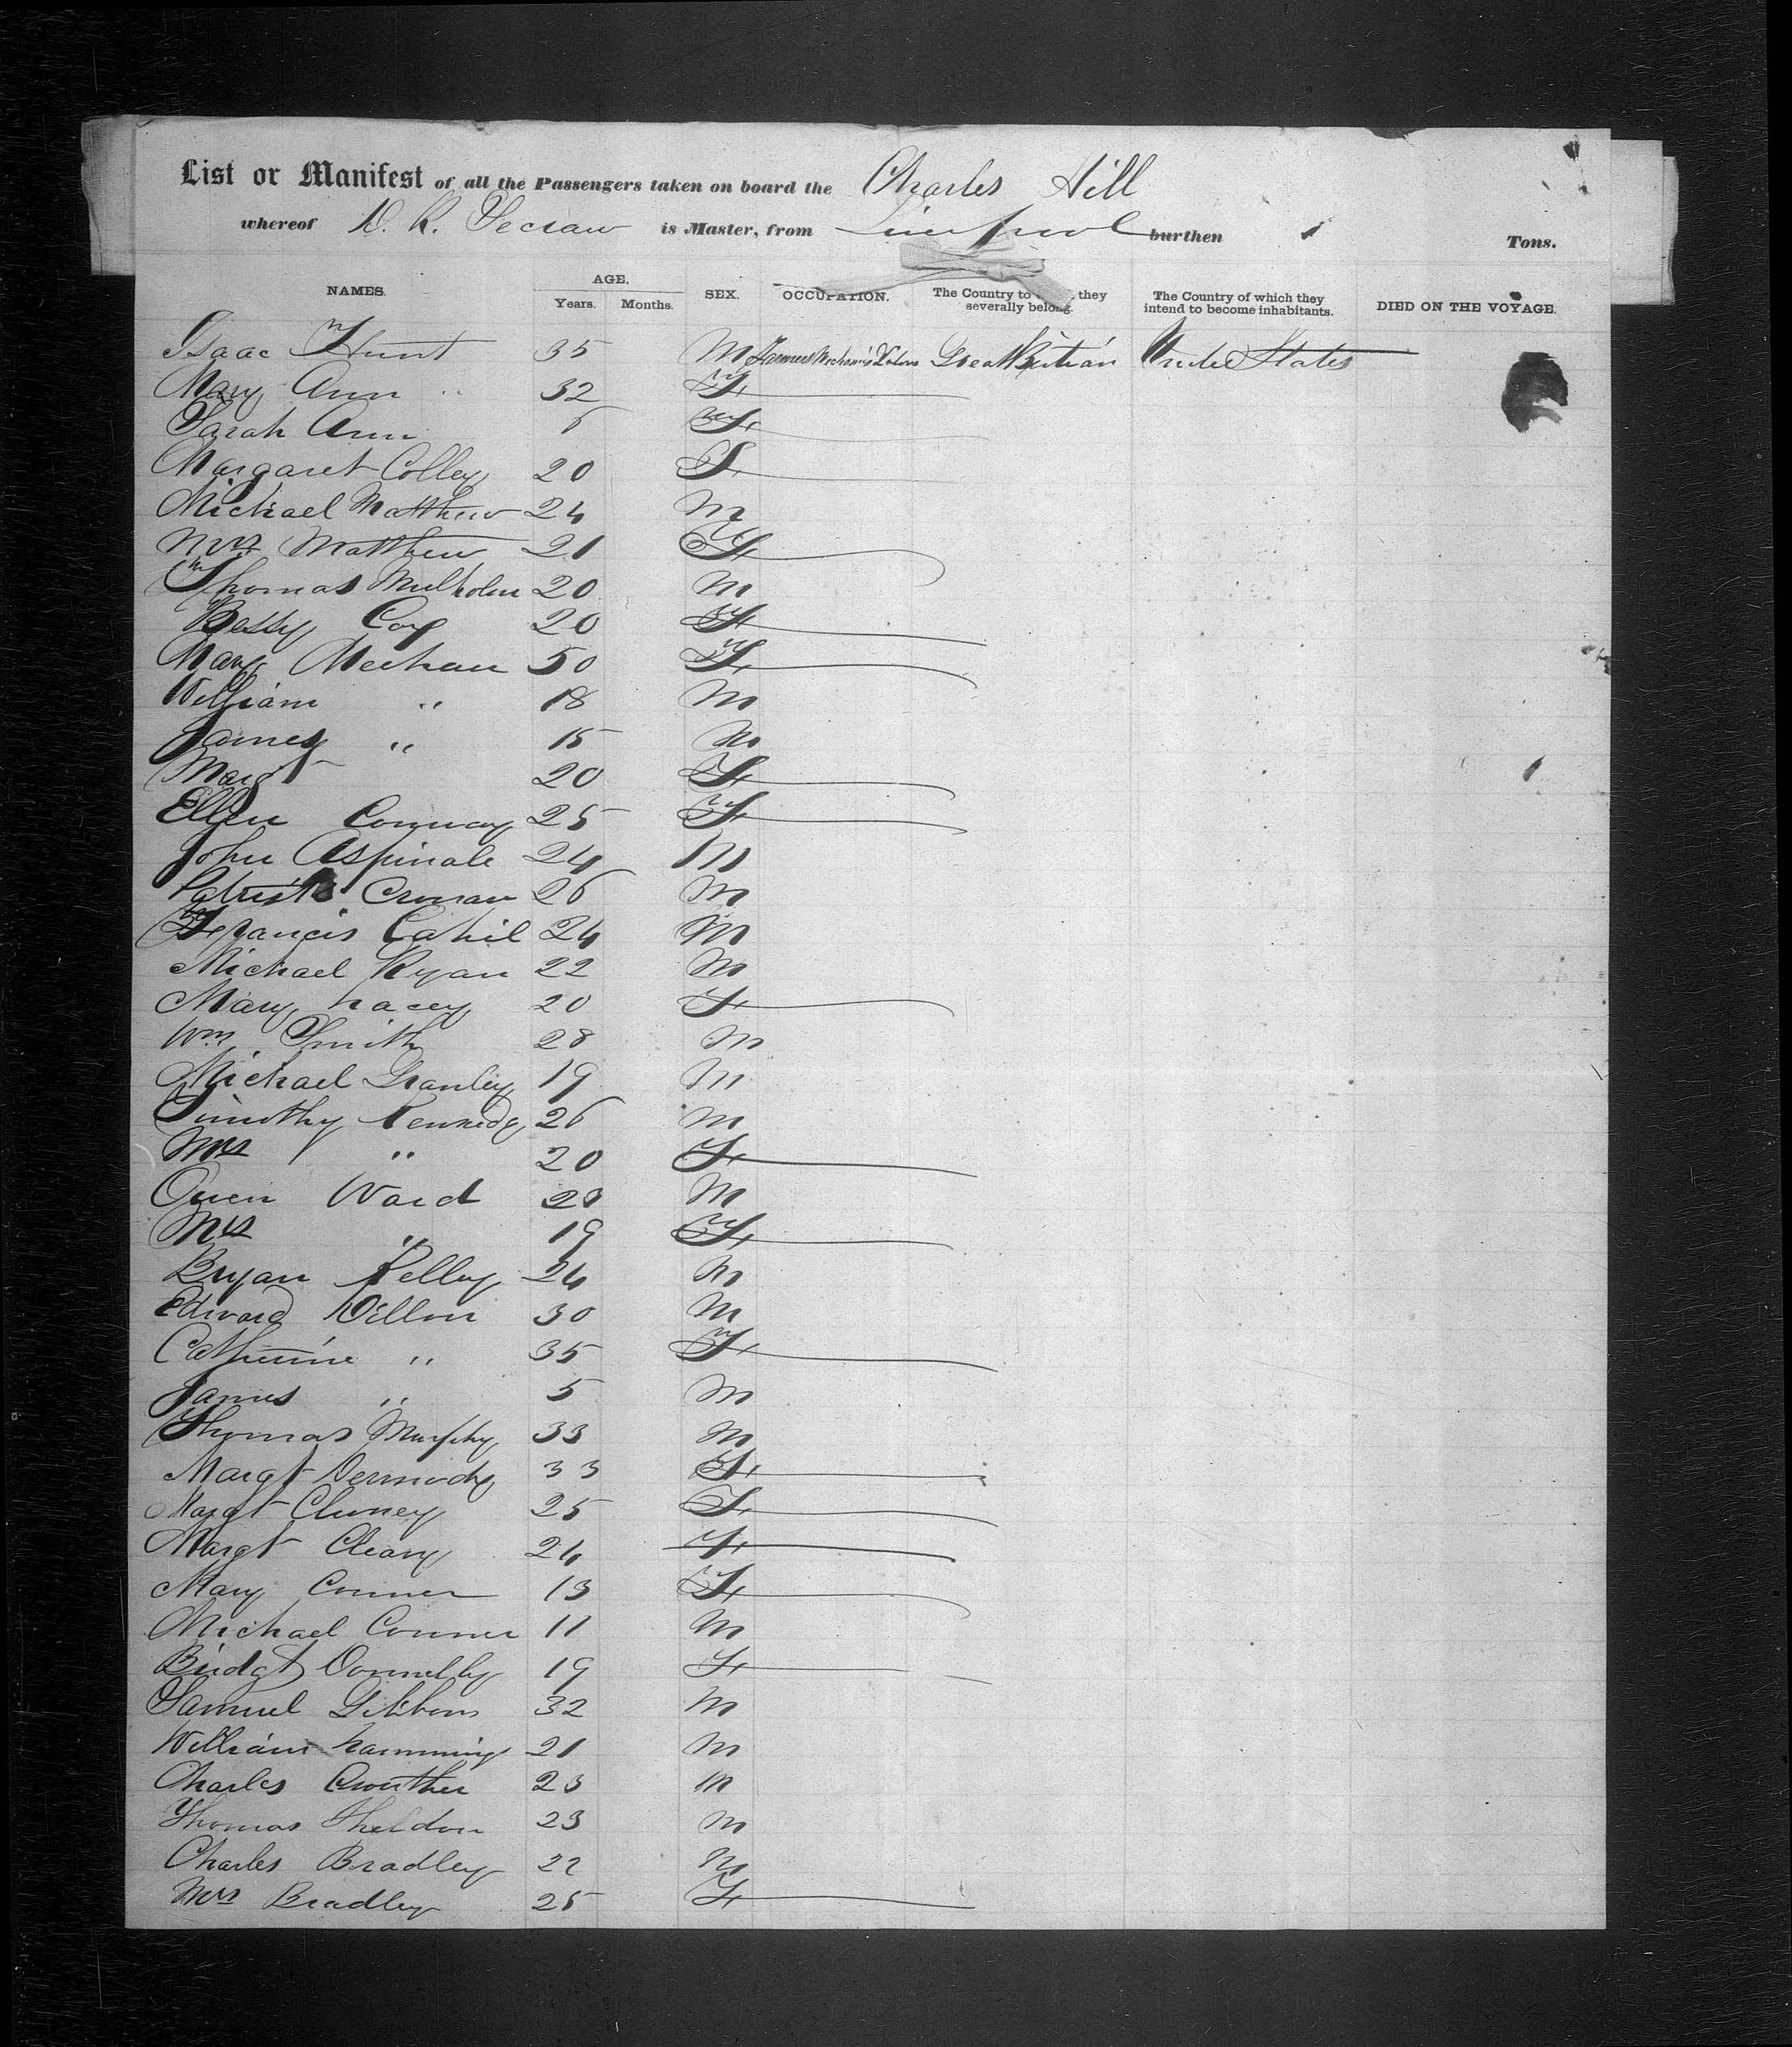 List or Manifest of all the Passengers taken on board the Charles Hill
whereof D. R. is Master, from Liverpool burthen Tons.
NAMES. AGE. Years. Months. SEX. OCCUPATION. The Country to they severally belong. The Country of which they intend to become inhabitants. DIED ON THE VOYAGE.
Isaac Hunt 35 M Farmers Mechanics Great Britian United States
Mary Ann " 32 F
Sarah Ann 6 F
Margaret Colley 20 F
Michael Matthew 24 M
Mrs Matthew 21 F
Thomas Mulholm 20 M
Betsy Coy 20 F
Mary Meehan 50 F
William " 18 M
James " 15 M
Margt 20 F
Ellen Conway 25 F
John Aspinale 24 M
Patrick Cronan 26 M
Francis Cahil 24 M
Michael Ryan 22 M
Mary Lacey 20 F
Wm Smith 28 M
Michael Granley 19 M
Timothy Kennedy 26 M
Mrs " 20 F
Owen Ward 23 M
Mrs " 19 F
Bryan Kelley 24 M
Edward Dillon 30 M
Catherine " 35 F
James " 5 M
Thomas Murphy 33 M
Margt Dermody 33 F
Margt Cluney 25 F
Margt Cleary 24 F
Mary Conner 13 F
Michael Conner 11 M
Bridgt Donnelly 19 F
Samuel Gibbons 32 M
William 21 M
Charles Crowther 23 M
Thomas Sheldon 23 M
Charles Bradley 22 M
Mrs Bradley 25 F